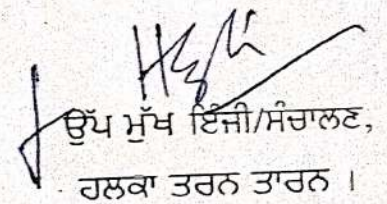 ਉੱਪ ਮੁੱਖ ਇੰਜੀ/ਸੰਚਾਲਣ,
ਹਲਕਾ ਤਰਨ ਤਾਰਨ ।